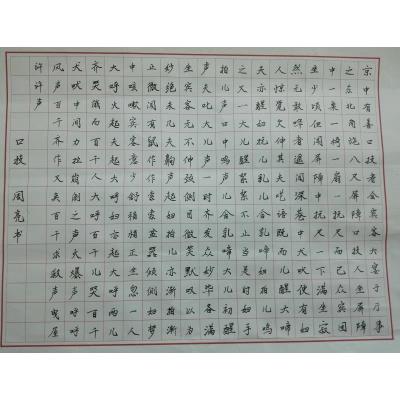 京中有善口技者会宾客大宴于厅事
之东北角施八尺屏障口技人坐屏障
中一桌一椅一扇一抚尺而已众宾团
坐少顷但闻屏障中抚尺一下满坐寂
然无敢哗者遥闻深巷中犬吠便有妇
人惊觉欠伸其夫呓语既而儿醒大啼
夫亦醒妇抚儿乳儿含乳啼妇拍而呜
之又一大儿醒絮絮不止当是时妇手
拍儿声口中呜声儿含乳啼大儿初醒
声夫叱大儿声一时齐发众妙毕备满
坐宾客无不伸颈侧目微笑默叹以为
妙绝未几夫齁声起妇拍儿亦渐拍渐
止微闻有鼠作作索索盆器倾侧妇梦
中咳嗽宾客意少舒稍稍正坐忽一人
大呼火起夫起大呼妇亦起大呼两儿
齐哭俄而百千人大呼百千儿哭百千
犬吠中间力拉崩倒之声火爆声呼呼
风声百千齐作又夹百千求救声曳屋
许许声
口技 周亮书